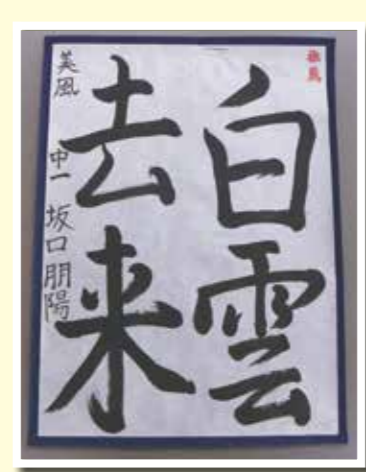 白雲
去来
美風 中一 坂口朋陽